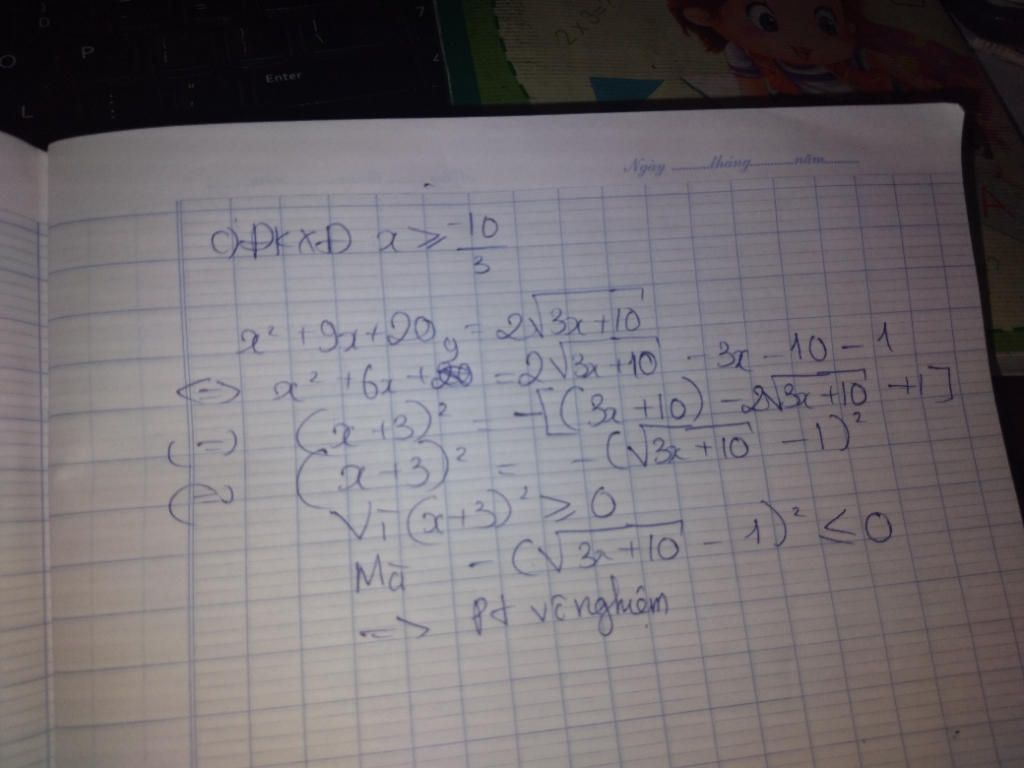 P
L
Enter
2x3=
Ngày ......... tháng ......... năm .........
c) ĐKXĐ x ≥ -10/3
x² + 9x + 20 = 2√(3x+10)
<=> x² + 6x + 9 = 2√(3x+10) - 3x - 10 - 1
<=> (x+3)² = -[(3x+10) - 2√(3x+10) + 1]
<=> (x+3)² = -(√(3x+10) - 1)²
Vì (x+3)² ≥ 0
Mà -(√(3x+10) - 1)² ≤ 0
=> pt vô nghiệm